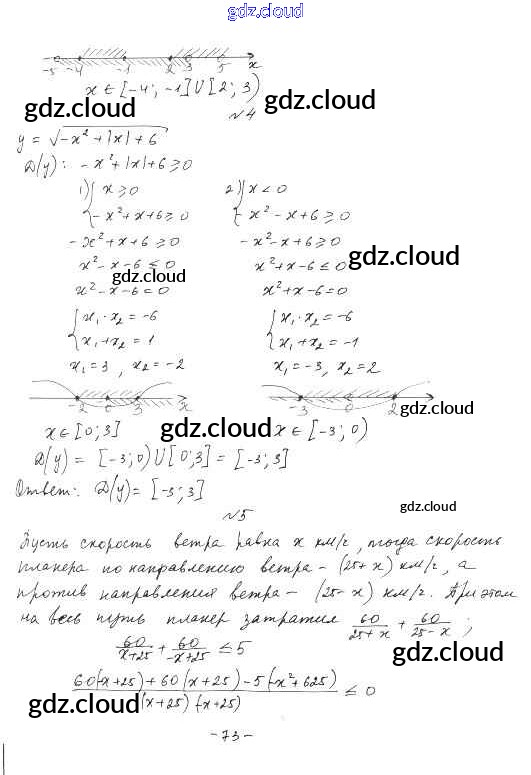 gdz.cloud
gdz.cloud
-5 -4 -1 2 3 5 x
x ∈ [-4; -1] ∪ [2; 3)
gdz.cloud gdz.cloud
№4
y = √(-x² + |x| + 6)
D(y): -x² + |x| + 6 ≥ 0
1) { x ≥ 0 2) { x < 0
-x² + x + 6 ≥ 0 -x² - x + 6 ≥ 0
-x² + x + 6 ≥ 0 -x² - x + 6 ≥ 0
gdz.cloud
x² - x - 6 ≤ 0 x² + x - 6 ≤ 0
gdz.cloud
x² - x - 6 = 0 x² + x - 6 = 0
{ x₁ · x₂ = -6 { x₁ · x₂ = -6
x₁ + x₂ = 1 x₁ + x₂ = -1
gdz.cloud
x₁ = 3, x₂ = -2 x₁ = -3, x₂ = 2
-2 0 3 x -3 0 2
gdz.cloud
x ∈ [0; 3] gdz.cloud x ∈ [-3; 0)
D(y) = [-3; 0) ∪ [0; 3] = [-3; 3]
Ответ: D(y) = [-3; 3]
gdz.cloud
№5
Пусть скорость ветра равна x км/ч, тогда скорость
планера по направлению ветра – (25 + x) км/ч, а
против направления ветра – (25 - x) км/ч. При этом
на весь путь планер затратил 60/(25 + x) + 60/(25 - x);
60/(x+25) + 60/(-x+25) ≤ 5
gdz.cloud gdz.cloud
(60(-x+25) + 60(x+25) - 5(-x²+625))/((x+25)(-x+25)) ≤ 0
gdz.cloud gdz.cloud
- 73 -